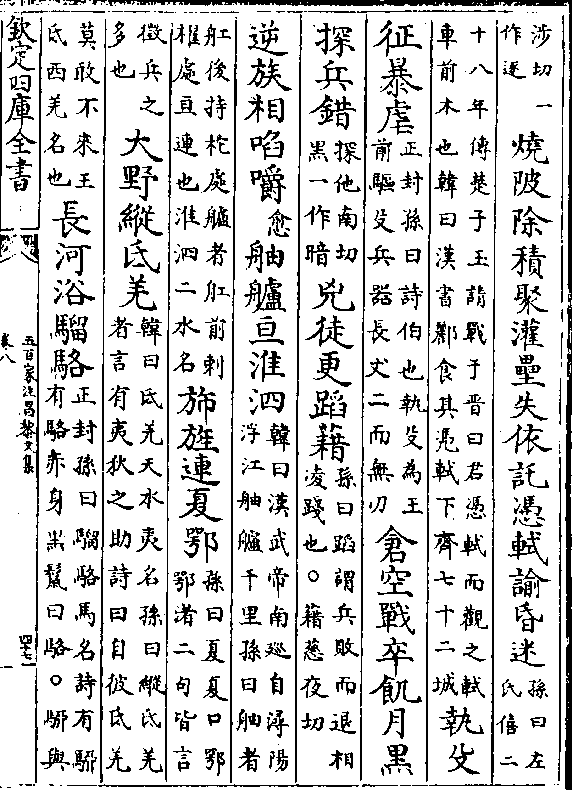 涉切一
作逐
燒陂除積聚灌壘失依託憑軾諭昏迷
孫曰左
氏僖二
十八年傳楚子玉請戰于晉曰君憑軾而觀之軾
車前木也韓曰漢書酈食其憑軾下齊七十二城
執殳
征暴虐
正封孫曰詩伯也執殳為王
前驅殳兵器長丈二而無刃
倉空戰卒飢月黑
探兵錯
探他南切
黑一作暗
兇徒更蹈藉
孫曰蹈謂兵敗而退相
凌踐也○藉慈夜切
逆族相啗嚼
愈
舳艫亘淮泗
韓曰漢武帝南巡自潯陽
浮江舳艫千里孫曰舳者
舡後持柁處艫者舡前刺
櫂處亘連也淮泗二水名
旆旌連夏鄂
孫曰夏夏口鄂
鄂渚二句皆言
徵兵之
多也
大野縱氐羌
韓曰氐羌天水夷名孫曰縱氐羌
者言有夷狄之助詩曰自彼氐羌
莫敢不來王
氐西羌名也
長河浴騮駱
正封孫曰騮駱馬名詩有駵
有駱赤身黑鬣曰駱○駵與
欽定四庫全書
卷八
五百家注昌黎文集